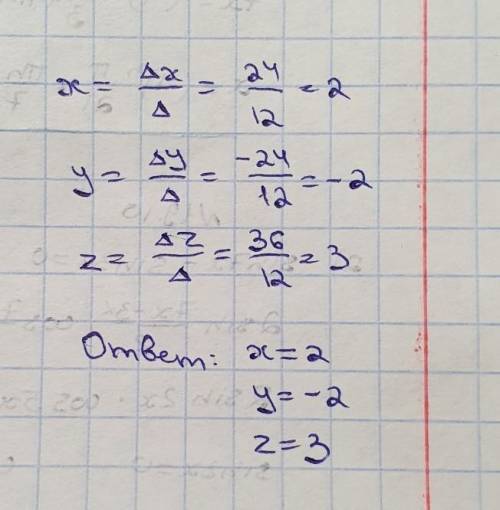 x = Δx/Δ = 24/12 = 2
y = Δy/Δ = -24/12 = -2
z = Δz/Δ = 36/12 = 3
Ответ: x = 2
y = -2
z = 3